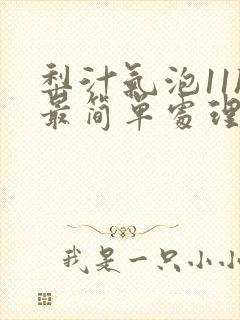 梨汁氣泡11
最简單處理
我是一只小小